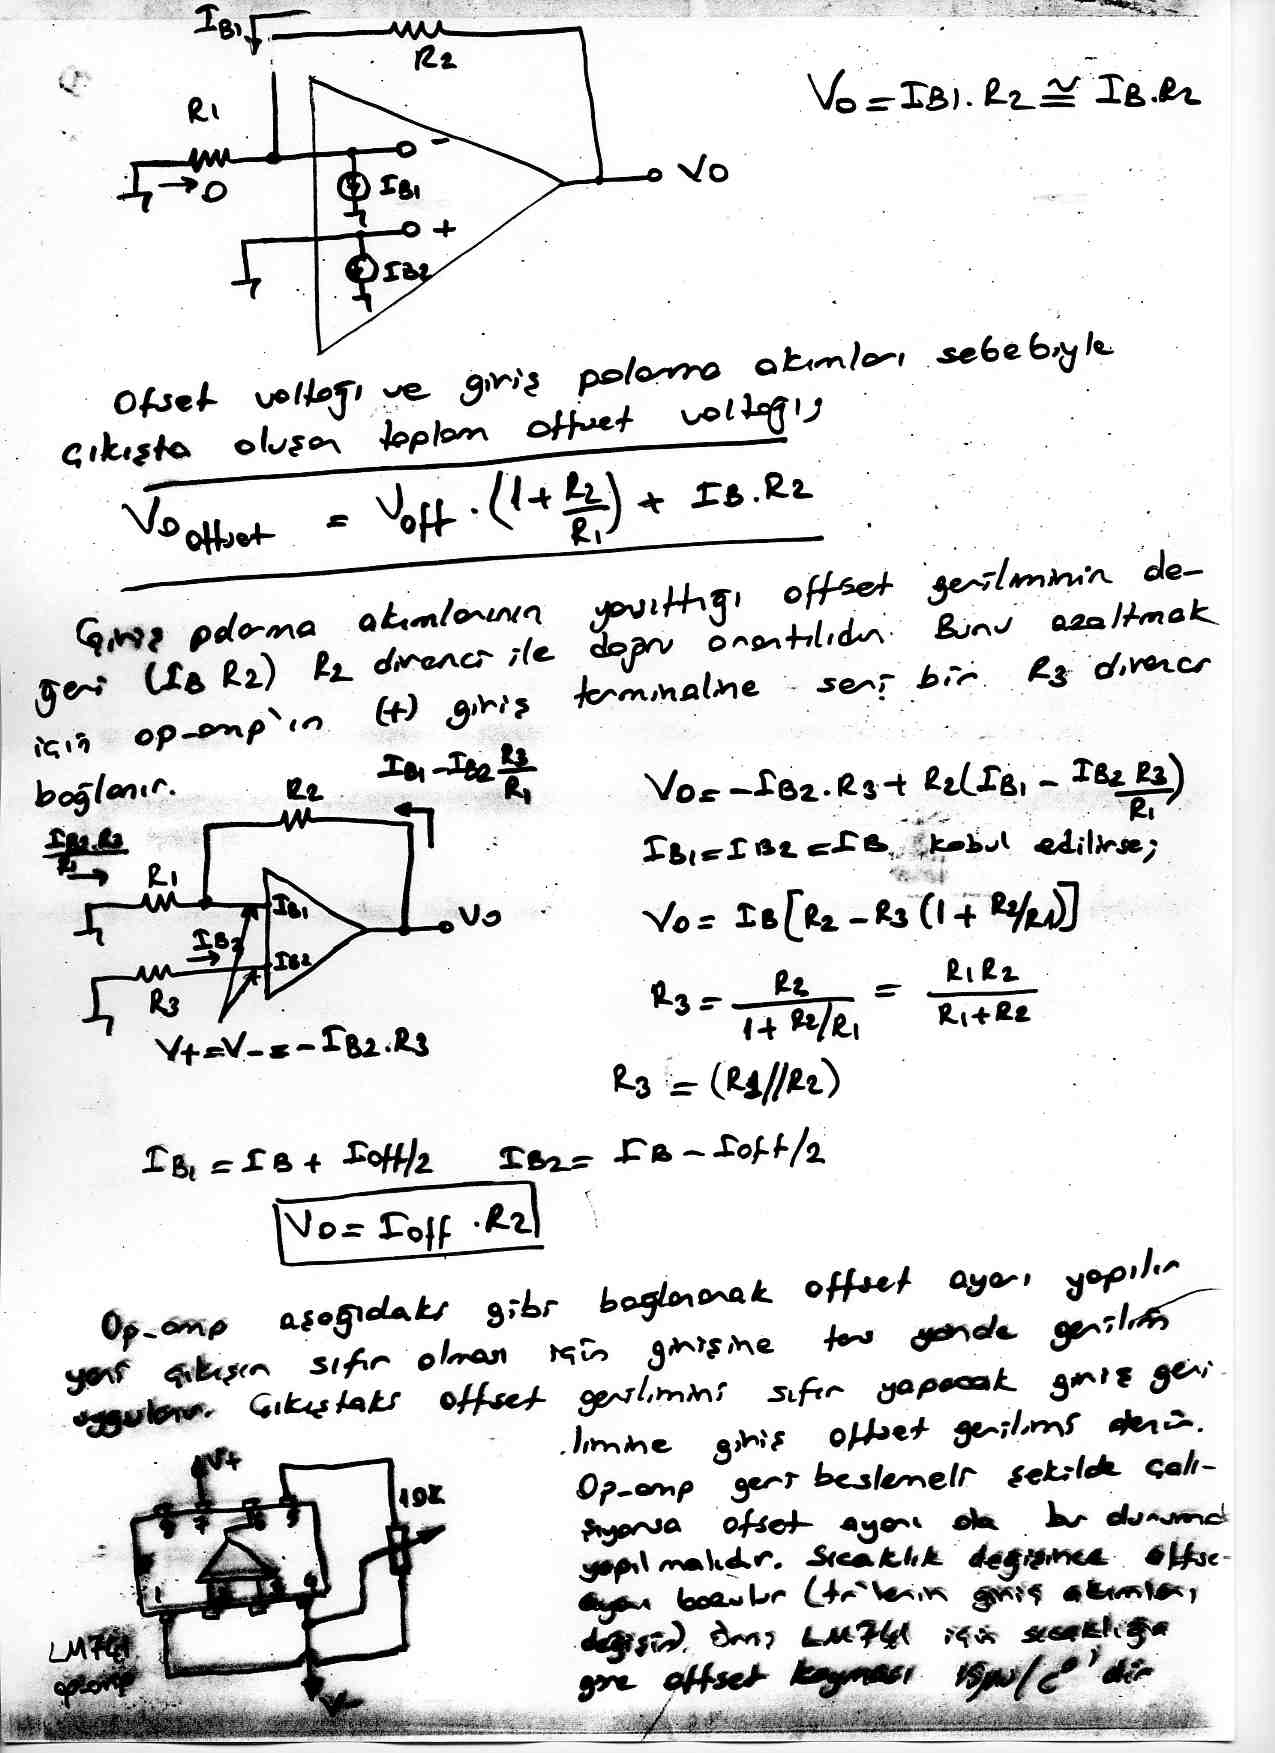 IB1
R2
R1
Vo = IB1.R2 ≅ IB.R2
-
Vo
0
IB1
+
IB2
Ofset voltağı ve giriş polarma akımları sebebiyle
çıkışta oluşan toplam offset voltağı;
Vo offset = Voff.(1+R2/R1) + IB.R2
Giriş polarma akımlarının yarattığı offset geriliminin de-
ğeri (IB R2) R2 direnci ile doğru orantılıdır. Bunu azaltmak
için op-amp'ın (+) giriş terminaline seri bir R3 direnci
bağlanır.
IB1-IB2 R3/R1
R2
IB2.R3/R1
R1
IB1
Vo
IB2
IB2
R3
V+=V-=-IB2.R3
Vo=-IB2.R3+R2(IB1 - IB2 R3/R1)
IB1=IB2=IB kabul edilirse;
Vo= IB[R2-R3(1+R2/R1)]
R3 = R2/(1+R2/R1) = R1R2/(R1+R2)
R3 = (R1//R2)
IB1=IB+Ioff/2 IB2=IB-Ioff/2
Vo=Ioff.R2
Op-amp aşağıdaki gibi bağlanarak offset ayarı yapılır
yani çıkışın sıfır olması için girişine ters yönde gerilim
uygulanır. Çıkıştaki offset gerilimini sıfır yapacak giriş geri-
limine giriş offset gerilimi denir.
Op-amp geri beslemeli şekilde çalı-
şıyorsa ofset ayarı da bu durumda
yapılmalıdır. Sıcaklık değişince offse
ayarı bozulur (tr'lerin giriş akımları
değişir). Örn; LM741 için sıcaklığa
göre offset kayması 15μv/C° dir
V+
8 7 6 5
10K
1 2 3 4
LM741
opamp
V-